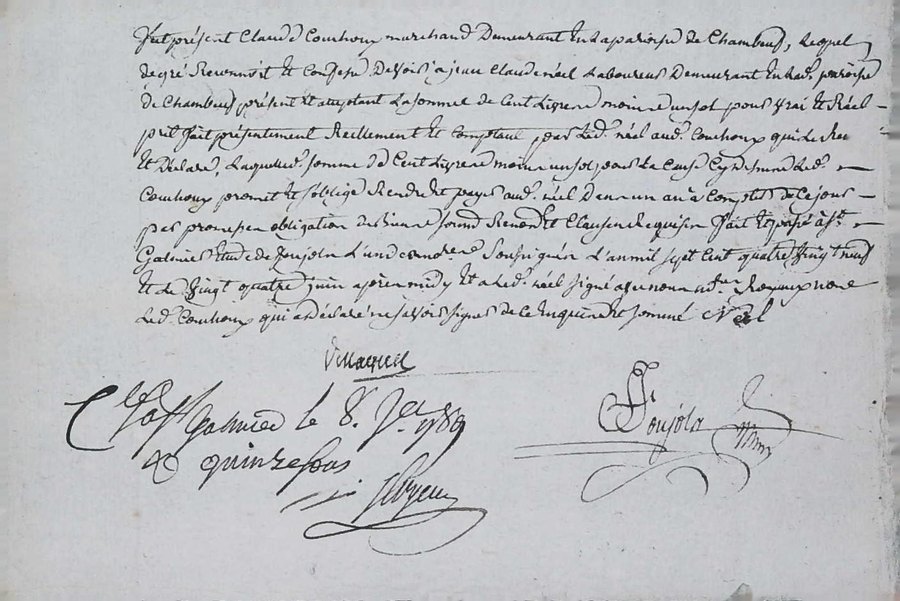 fut présent Claude Couchoux marchand Demeurant En La paroisse de Chambeuf, Lequel
de gré Reconnoit Et Confesse Devoir a jean Claude néel Laboureur Demeurant En lad. paroisse
de Chambeuf présent Et acceptant La somme de Cent Livres moins un sol pour vrai Et Réel
prit fait présentement Reellement Et Comptant par Led. néel aud. Couchoux qui Le Reconnoit
Et Déclare, Laquelle somme de Cent Livres moins un sol pour La Cause Cy dessus Led.
Couchoux promet et s'oblige Rendre Et payer aud. néel Dans un an à Compter de Ce jour
par promesse obligation de Biens Et Clauses Requises fait Et passé à St.
Galmier Etude de Poujola L'un des no.res Soussignés L'an mil sept Cent quatre vingt neuf
Et Le vingt quatre juin après midy Et a Led. néel signé avec nous no.res Royaux non
Led. Couchoux qui a déclaré ne savoir signer de Ce Enquis Et sommé Néel
C.lé à St Galmier le 8. J.et 1789
R quinze sous
Poujola